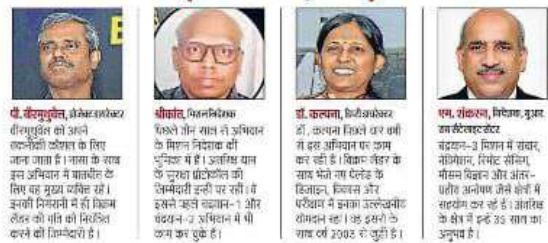 पी. वीरमुथुवेल, प्रोजेक्ट डायरेक्टर
वीरमुथुवेल को अपने
तकनीकी कौशल के लिए
जाना जाता है। नासा के साथ
इस अभियान में बातचीत के
लिए वह मुख्य व्यक्ति रहे।
इनकी निगरानी में ही विक्रम
लैंडर की गति को नियंत्रित
करने की जिम्मेदारी है।
श्रीकांत, मिशन निदेशक
पिछले तीन साल से अभियान
के मिशन निदेशक की
भूमिका में हैं। अंतरिक्ष यान
के सुरक्षा प्रोटोकॉल की
जिम्मेदारी इन्हीं पर रही। वे
इससे पहले चंद्रयान-1 और
चंद्रयान-2 अभियान में भी
काम कर चुके हैं।
डॉ. कल्पना, डिप्टी डायरेक्टर
डॉ. कल्पना पिछले चार वर्षों
से इस अभियान पर काम
कर रही हैं। विक्रम लैंडर के
साथ भेजे गए पेलोड के
डिजाइन, विकास और
परीक्षण में इनका उल्लेखनीय
योगदान रहा। वह इसरो के
साथ वर्ष 2003 से जुड़ी हैं।
एम. शंकरन, निदेशक, यू.आर.
राव सैटेलाइट सेंटर
चंद्रयान-3 मिशन में संचार,
नेविगेशन, रिमोट सेंसिंग,
मौसम विज्ञान और अंतर-
ग्रहीय अन्वेषण जैसे क्षेत्रों में
सहयोग कर रहे हैं। अंतरिक्ष
के क्षेत्र में इन्हें 35 साल का
अनुभव है।